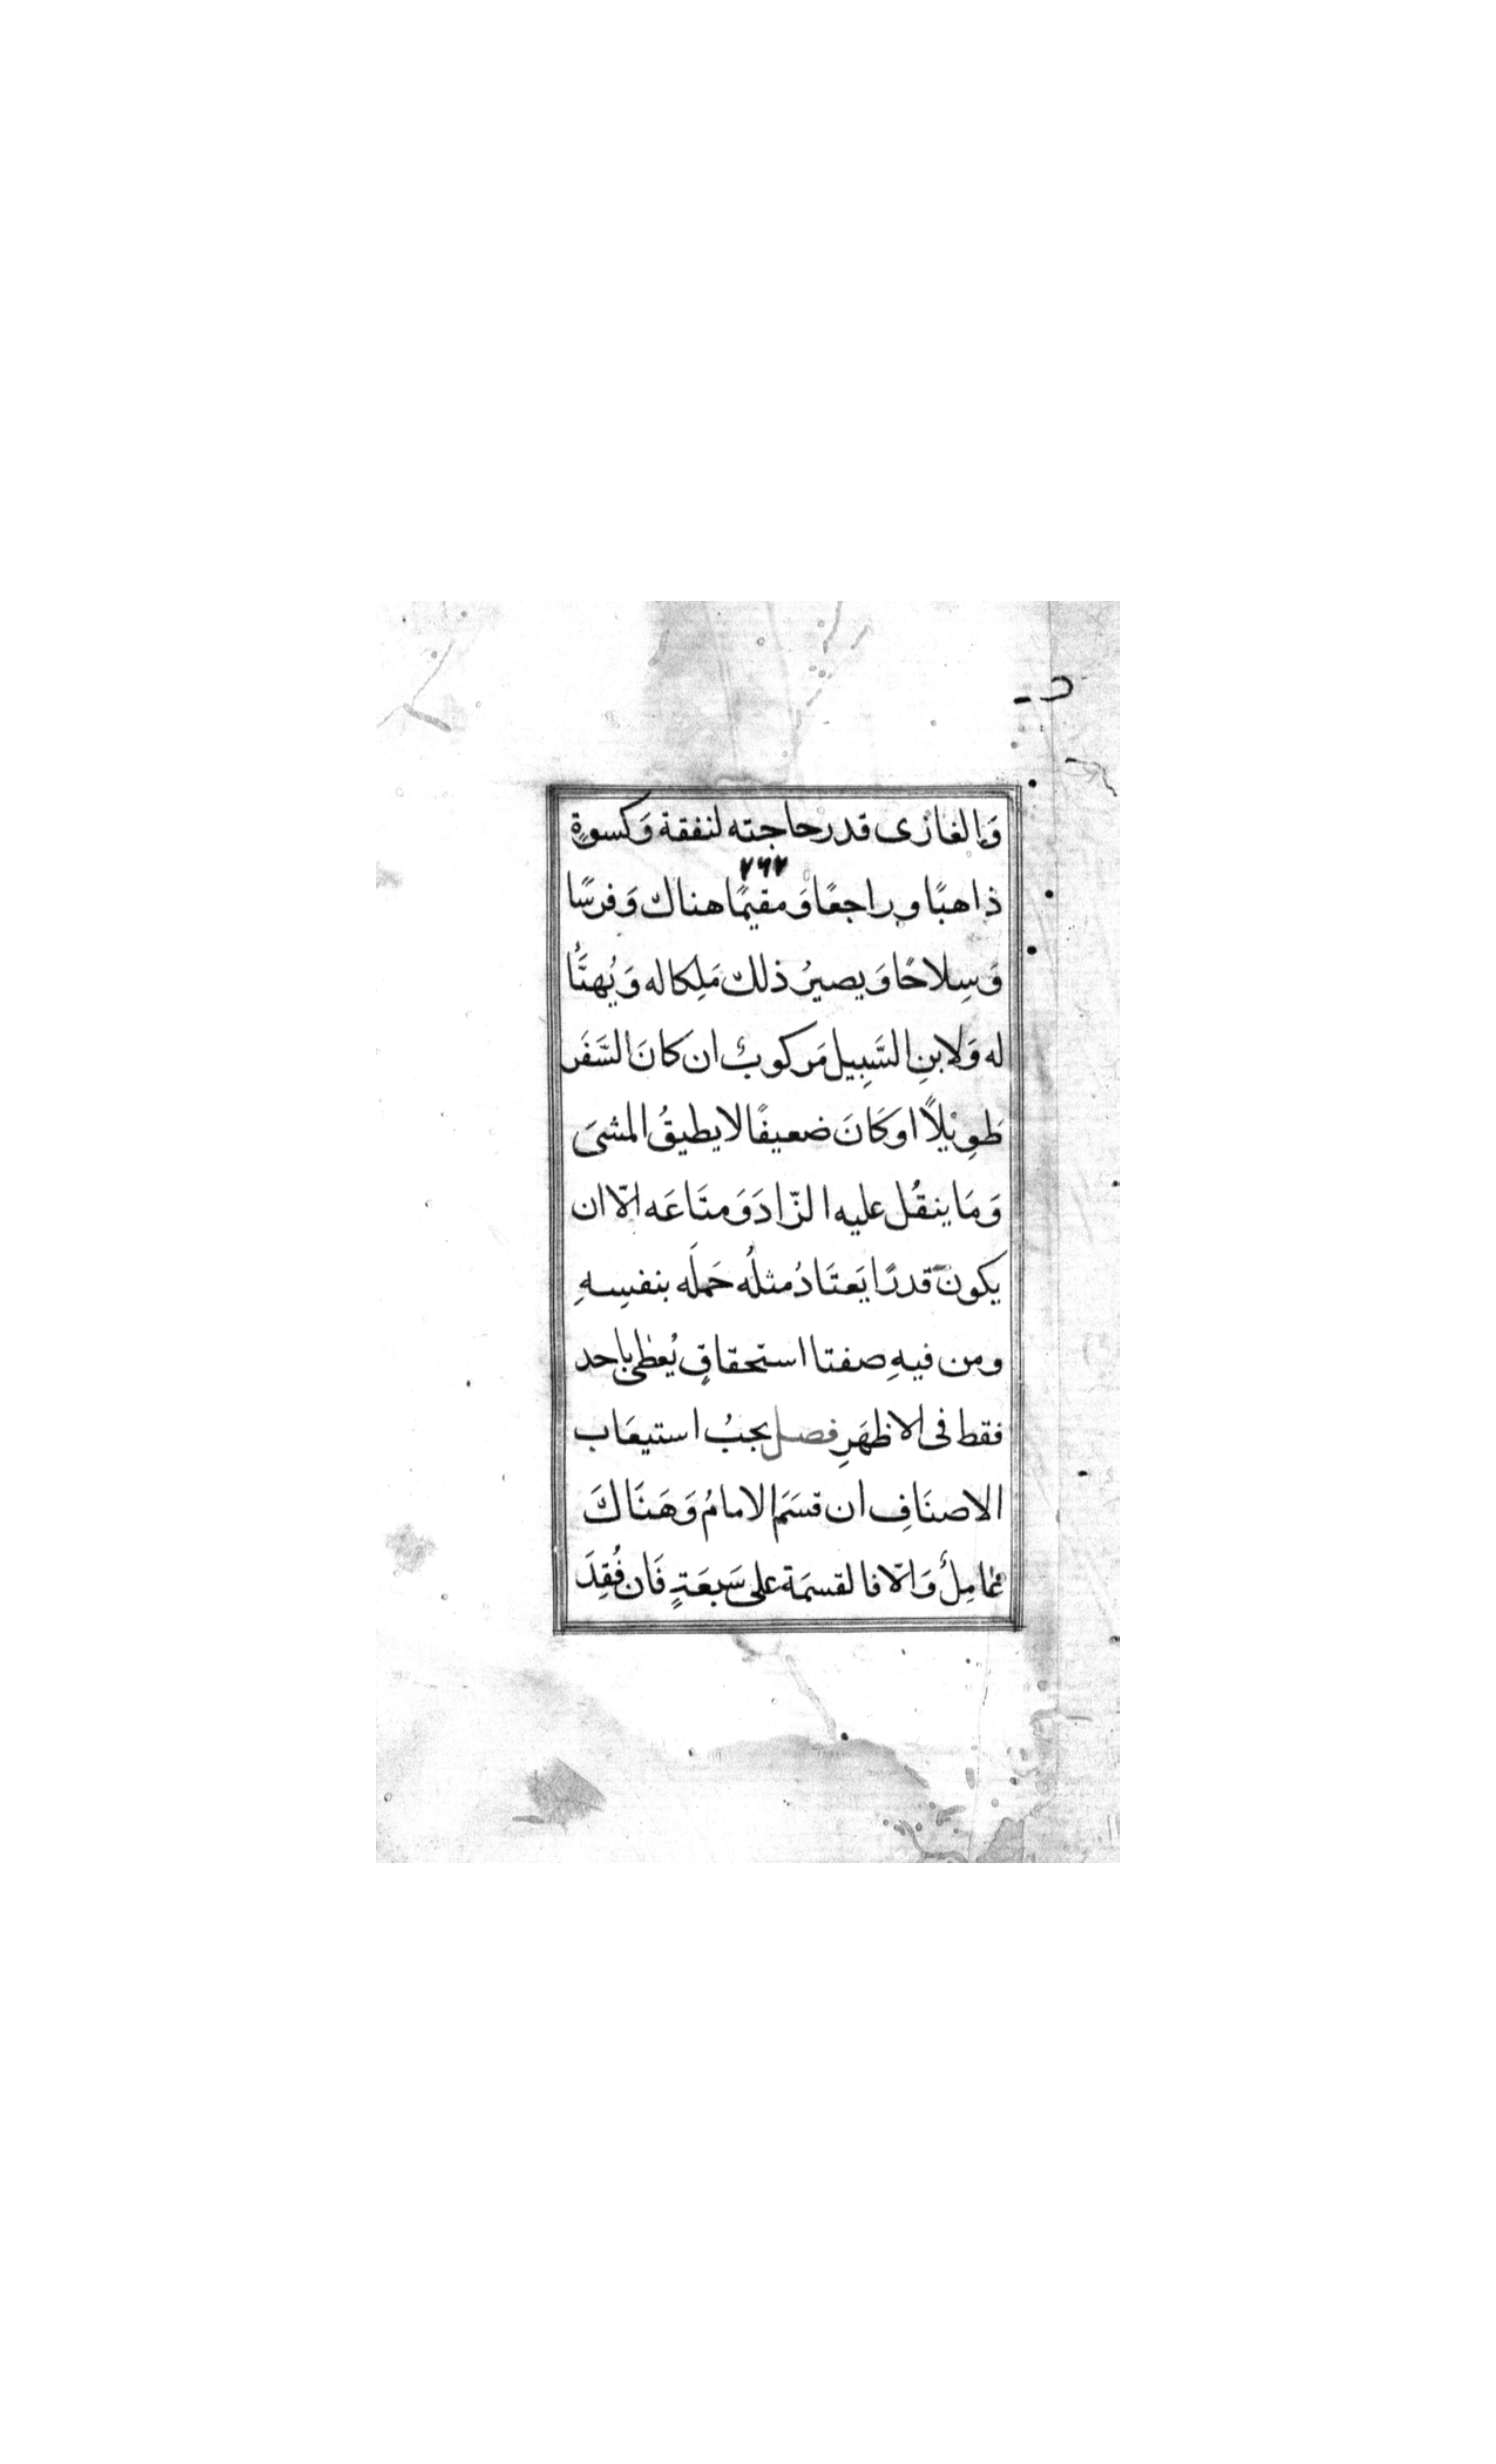 وَالغازى قدر حاجته لنفقة وَكسوةٍ
٧٦٧
ذاهبًا وراجعًا وَمقيمًا هناك وَفرسًا
وَسِلاحًا وَيصيرُ ذلك مَلِكا له وَيُهيَّأُ
له وَلابنِ السَّبِيل مَركوبٌ ان كانَ السَّفَر
طَوِيْلاً او كَانَ ضعيفًا لا يطيقُ المشىَ
وَمَا ينقُل عليه الزّادَ وَمتَاعَه الّا ان
يكونَ قدرًا يَعتَادُ مثلُه حَملَه بنفسِهِ
ومن فيهِ صفتا استحقاقٍ يُعطٰى باحد
فقط فى الاظهَرِ فصل يجبُ استيعَاب
الاصنَافِ ان قسَمَ الامامُ وَهَنَاكَ
عَامِلٌ وَالّا فالقسمَة على سَبعَةٍ فَان فُقِدَ